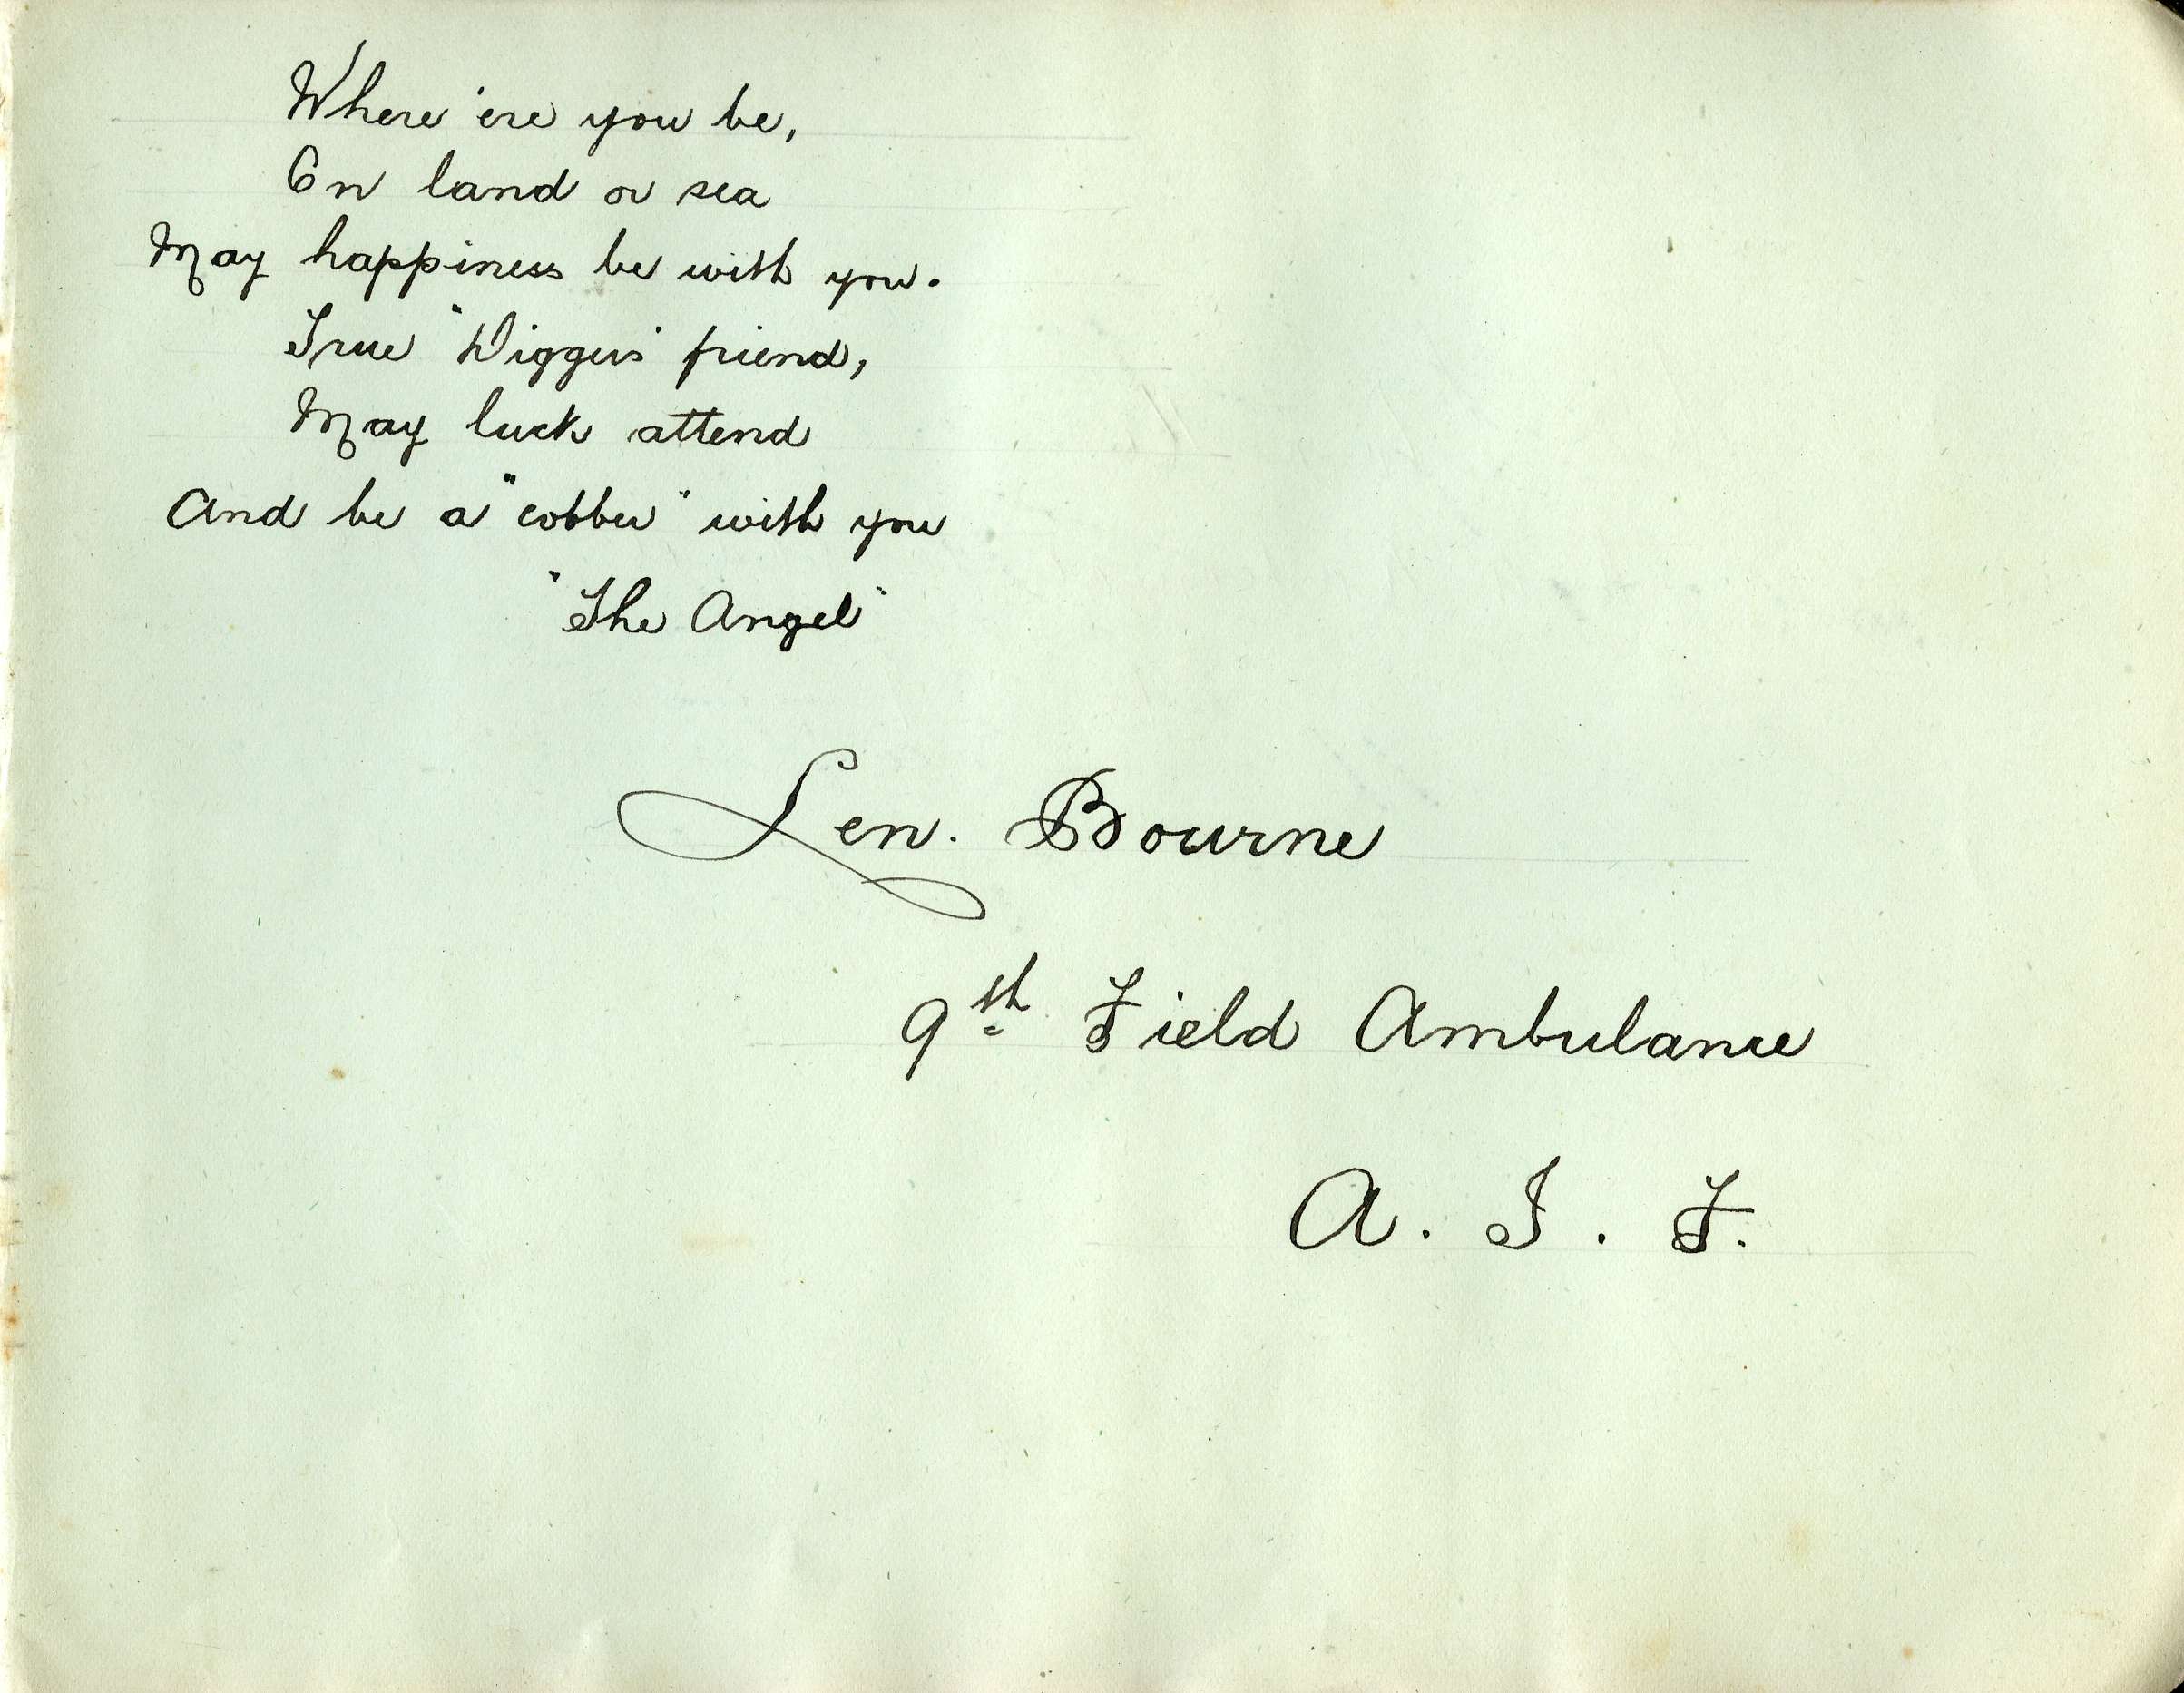 Where 'ere you be,
On land or sea
May happiness be with you.
True "Diggers" friend,
May luck attend
And be a "cobber" with you
"The Angel"
Len. Bourne
9th Field Ambulance
A. I. F.